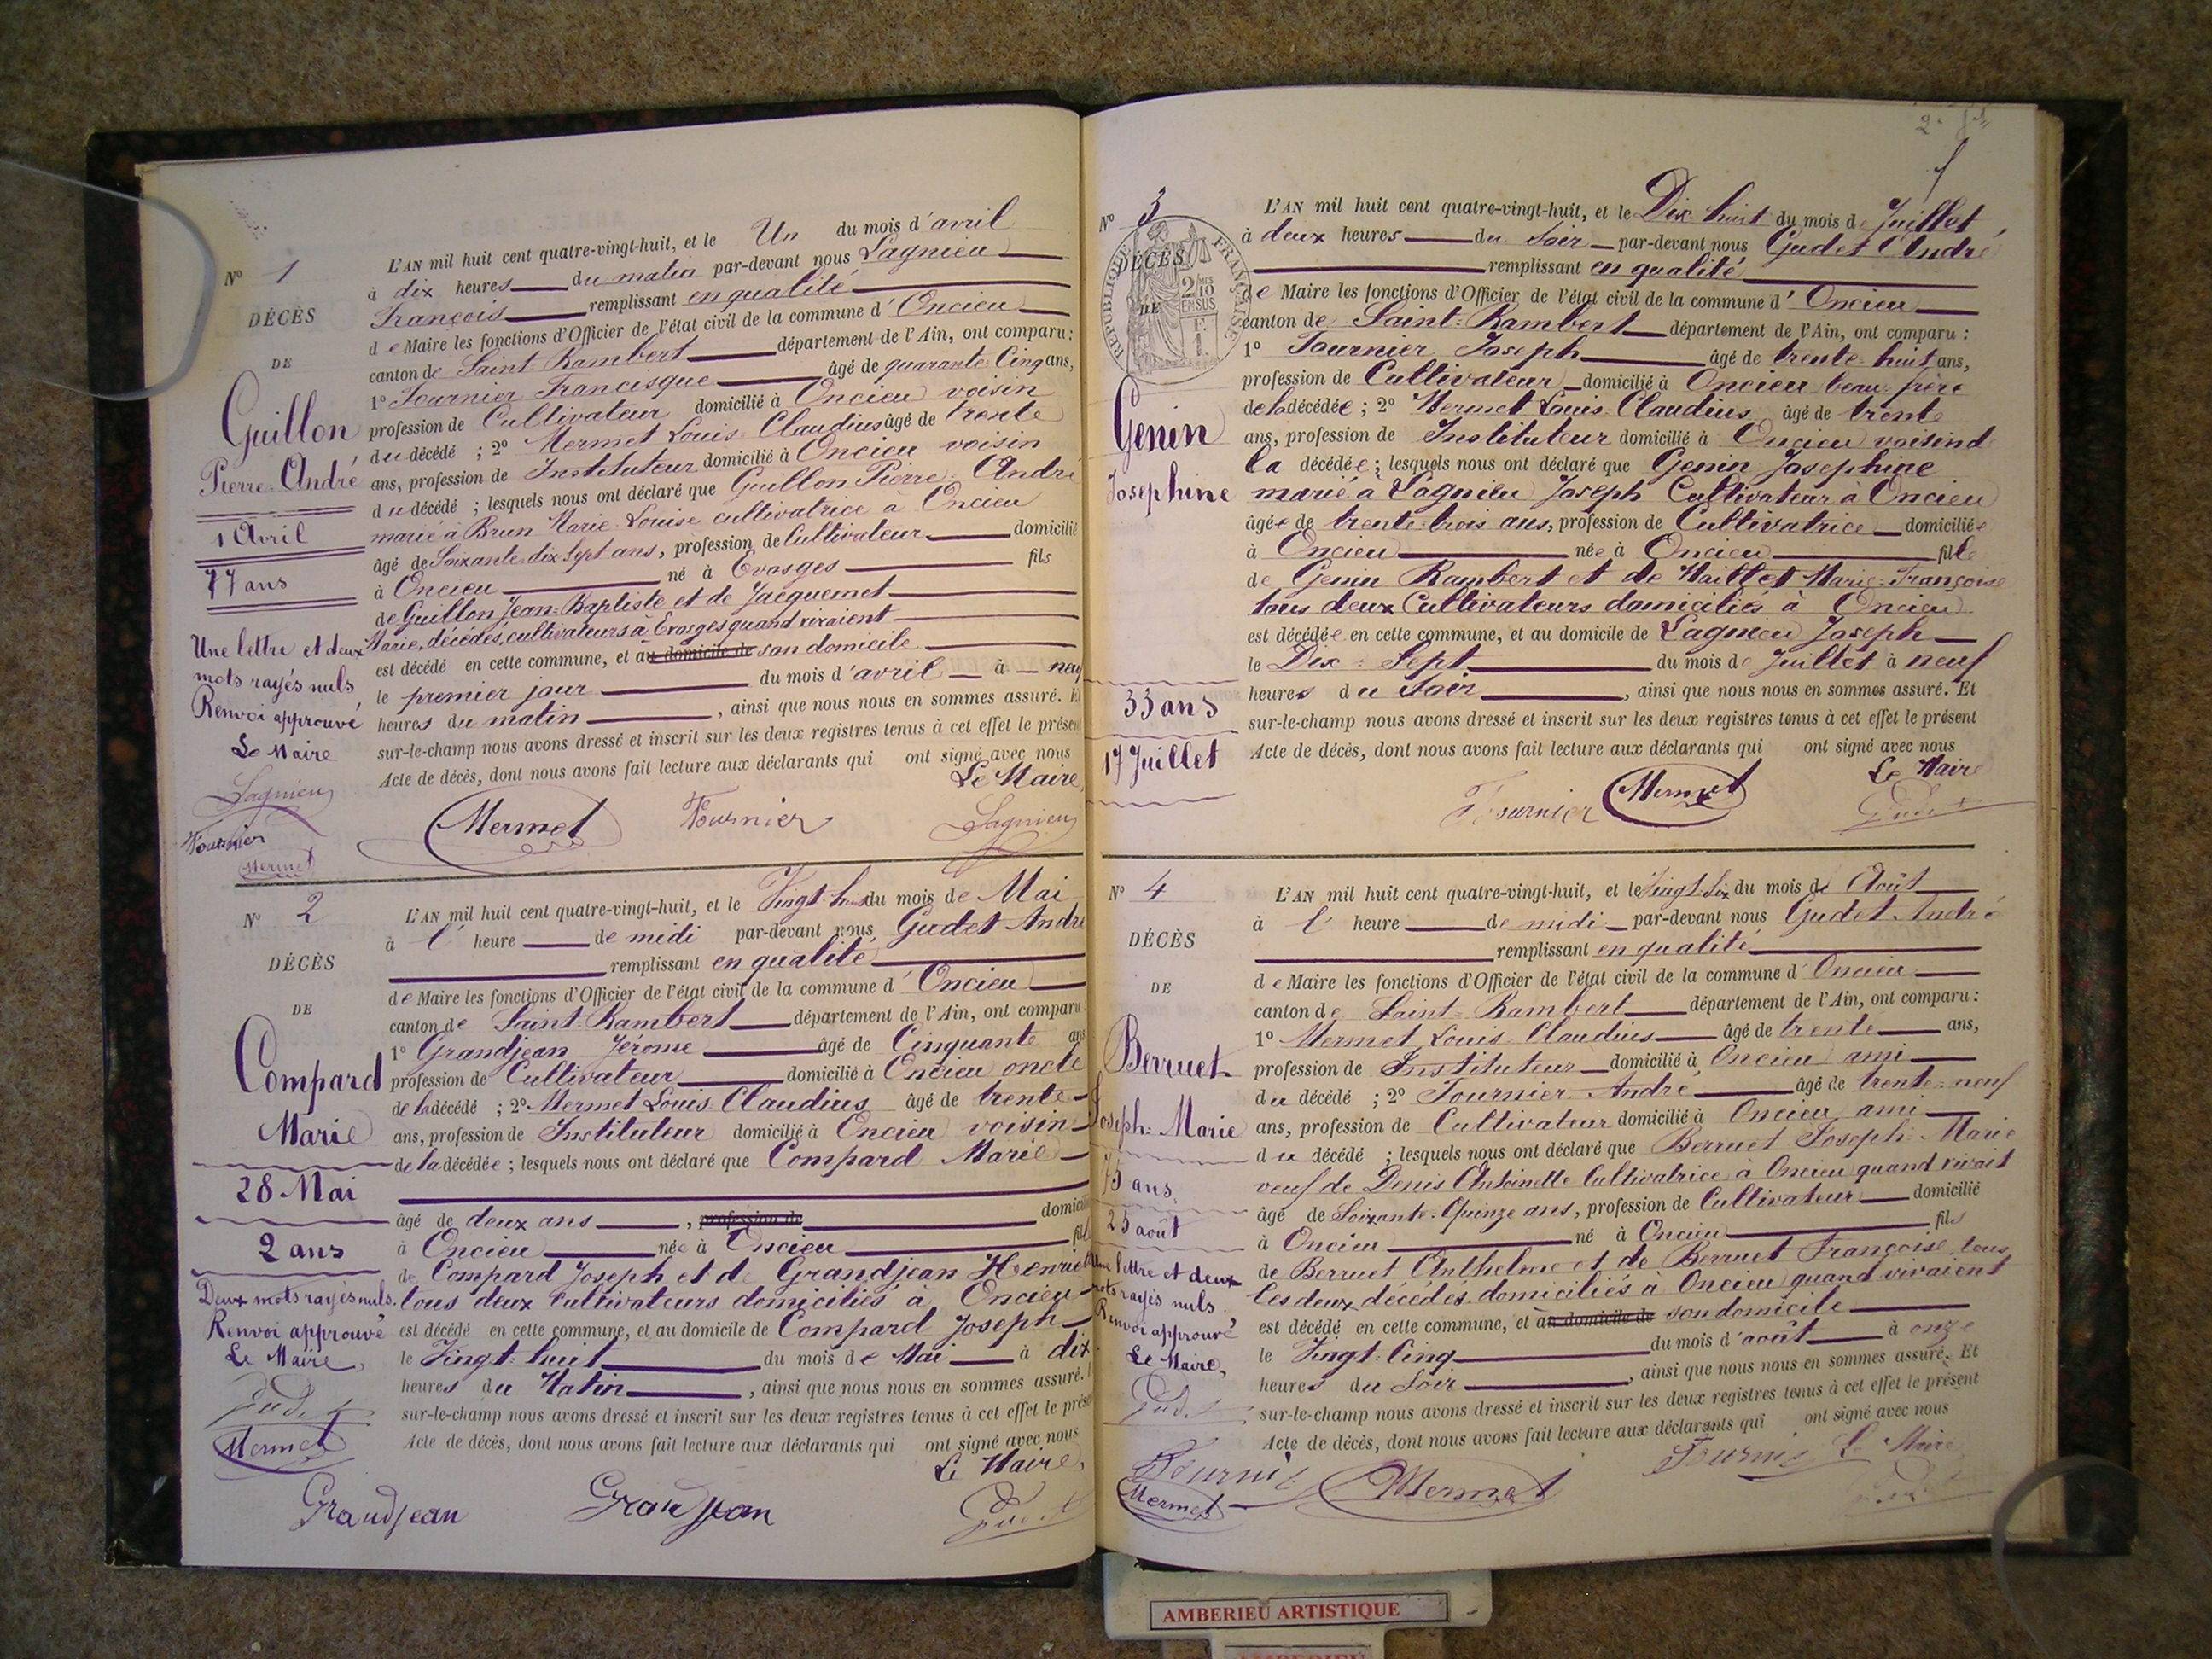 N° 1
DÉCÈS
DE
Guillon
Pierre-André
1 Avril
77 ans
Une lettre et deux
mots rayés nuls
Renvoi approuvé
Le Maire
Lagnieu
Fournier
Mermet
L'AN mil huit cent quatre-vingt-huit, et le Un du mois d'avril
à dix heures du matin par-devant nous Lagnieu
François remplissant en qualité
de Maire les fonctions d'Officier de l'état civil de la commune d'Oncieu
canton de Saint-Rambert département de l'Ain, ont comparu :
1° Fournier Francisque âgé de quarante-Cinq ans,
profession de Cultivateur domicilié à Oncieu voisin
du décédé ; 2° Mermet Louis-Claudius âgé de trente
ans, profession de Instituteur domicilié à Oncieu voisin
du décédé ; lesquels nous ont déclaré que Guillon Pierre-André
marié à Brun Marie-Louise cultivatrice à Oncieu
âgé de Soixante dix Sept ans, profession de Cultivateur domicilié
à Oncieu né à Evosges fils
de Guillon Jean-Baptiste et de Jacquemet
Marie, décédés, cultivateurs à Evosges quand vivaient
est décédé en cette commune, et au domicile de son domicile
le premier jour du mois d'avril à neuf
heures du matin, ainsi que nous nous en sommes assuré. Et
sur-le-champ nous avons dressé et inscrit sur les deux registres tenus à cet effet le présent
Acte de décès, dont nous avons fait lecture aux déclarants qui ont signé avec nous
Le Maire
Mermet Fournier Lagnieu
N° 2
DÉCÈS
DE
Compard
Marie
28 Mai
2 ans
Deux mots rayés nuls.
Renvoi approuvé
Le Maire,
Gudet
Mermet
Grandjean
L'AN mil huit cent quatre-vingt-huit, et le Vingt-huit du mois de Mai
à l' heure de midi par-devant nous Gudet André
remplissant en qualité
de Maire les fonctions d'Officier de l'état civil de la commune d'Oncieu
canton de Saint-Rambert département de l'Ain, ont comparu
1° Grandjean Jérome âgé de Cinquante ans
profession de Cultivateur domicilié à Oncieu oncle
de la décédé ; 2° Mermet Louis Claudius âgé de trente
ans, profession de Instituteur domicilié à Oncieu voisin
de la décédée ; lesquels nous ont déclaré que Compard Marie
âgé de deux ans, profession de domicilié
à Oncieu née à Oncieu fille
de Compard Joseph et de Grandjean Henrie
tous deux Cultivateurs domiciliés à Oncieu
est décédé en cette commune, et au domicile de Compard Joseph
le Vingt-huit du mois de Mai à dix
heures du Matin, ainsi que nous nous en sommes assuré.
sur-le-champ nous avons dressé et inscrit sur les deux registres tenus à cet effet le présent
Acte de décès, dont nous avons fait lecture aux déclarants qui ont signé avec nous
Le Maire,
Grandjean Gudet
N° 3
DÉCÈS
DE
RÉPUBLIQUE FRANÇAISE
Genin
Josephine
33 ans
17 Juillet
L'AN mil huit cent quatre-vingt-huit, et le Dix-huit du mois de Juillet
à deux heures du Soir par-devant nous Gudet André
remplissant en qualité
de Maire les fonctions d'Officier de l'état civil de la commune d'Oncieu
canton de Saint-Rambert département de l'Ain, ont comparu :
1° Fournier Joseph âgé de trente-huit ans,
profession de Cultivateur domicilié à Oncieu beau-frère
de la décédée ; 2° Mermet Louis-Claudius âgé de trente
ans, profession de Instituteur domicilié à Oncieu voisin d
la décédée ; lesquels nous ont déclaré que Genin Josephine
marié à Lagnieu Joseph Cultivateur à Oncieu
âgée de trente-trois ans, profession de Cultivatrice domiciliée
à Oncieu née à Oncieu fille
de Genin Rambert et de Maillet Marie-Françoise
tous deux Cultivateurs domiciliés à Oncieu
est décédée en cette commune, et au domicile de Lagnieu Joseph
le Dix-Sept du mois de Juillet à neuf
heures du Soir, ainsi que nous nous en sommes assuré. Et
sur-le-champ nous avons dressé et inscrit sur les deux registres tenus à cet effet le présent
Acte de décès, dont nous avons fait lecture aux déclarants qui ont signé avec nous
Le Maire
Fournier Mermet Gudet
N° 4
DÉCÈS
DE
Berruet
Joseph-Marie
75 ans
25 août
Une lettre et deux
mots rayés nuls
Renvoi approuvé
Le Maire,
Gudet
Fournier
Mermet
L'AN mil huit cent quatre-vingt-huit, et le Vingt-Six du mois de Août
à l' heure de midi par-devant nous Gudet André
remplissant en qualité
de Maire les fonctions d'Officier de l'état civil de la commune d'Oncieu
canton de Saint-Rambert département de l'Ain, ont comparu :
1° Mermet Louis Claudius âgé de trente ans,
profession de Instituteur domicilié à Oncieu ami
du décédé ; 2° Fournier André âgé de trente-neuf
ans, profession de Cultivateur domicilié à Oncieu ami
du décédé ; lesquels nous ont déclaré que Berruet Joseph-Marie
veuf de Denis Antoinette Cultivatrice à Oncieu quand vivait
âgé de Soixante-Quinze ans, profession de Cultivateur domicilié
à Oncieu né à Oncieu fils
de Berruet Anthelme et de Berruet Françoise tous
les deux décédés domiciliés à Oncieu quand vivaient
est décédé en cette commune, et au domicile de son domicile
le Vingt-Cinq du mois d'août à onze
heures du Soir, ainsi que nous nous en sommes assuré. Et
sur-le-champ nous avons dressé et inscrit sur les deux registres tenus à cet effet le présent
Acte de décès, dont nous avons fait lecture aux déclarants qui ont signé avec nous
Fournier Le Maire
Mermet Gudet
AMBERIEU ARTISTIQUE
AMBERIEU